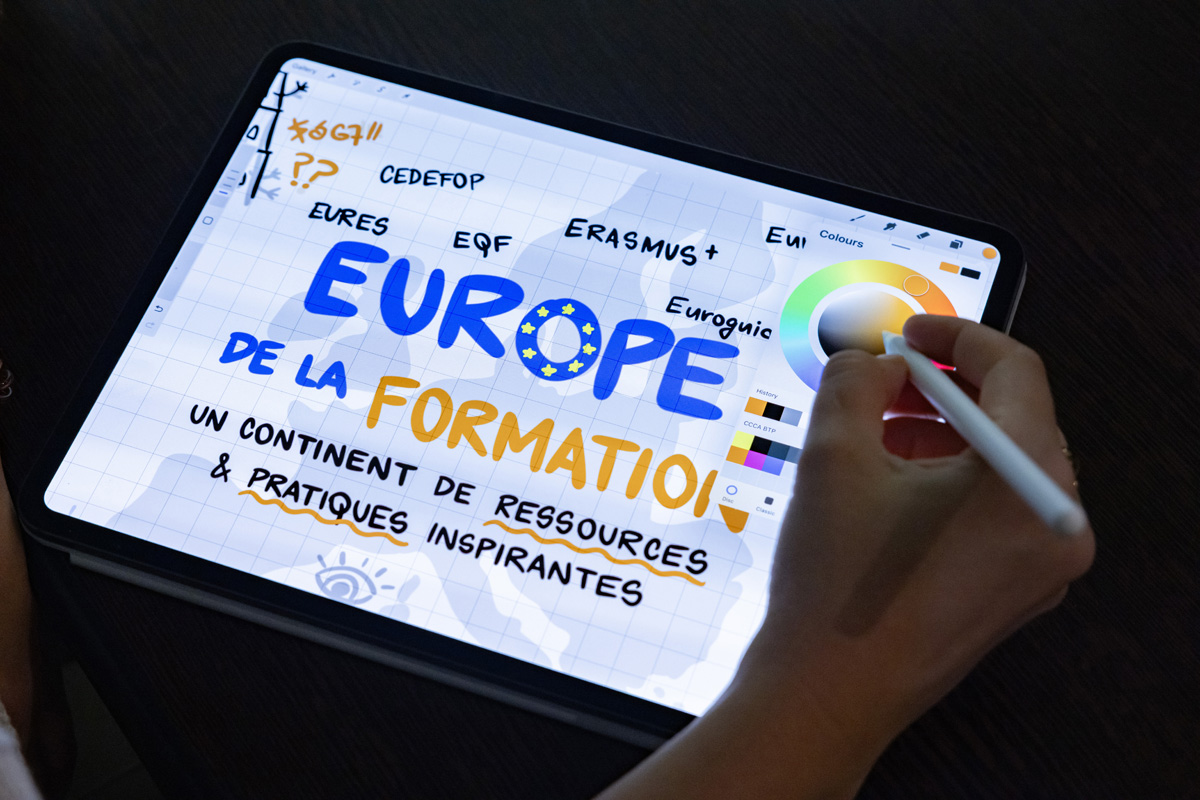 Gallery
??
CEDEFOP
EURES
EQF
ERASMUS+
Colours
EUROPE
DE LA FORMATION
UN CONTINENT DE RESSOURCES
& PRATIQUES INSPIRANTES
History
CCCA BTP
Disc
Classic